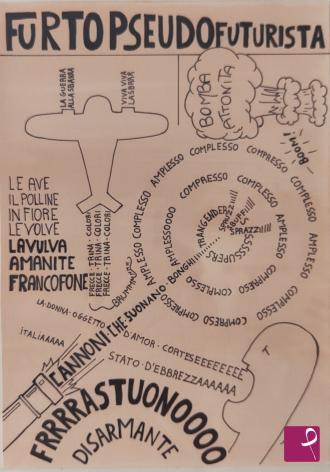 FURTOPSEUDOFUTURISTA
LA GUERRA
ALLA SBARRA
VIVA VIVA
LA SBARR
BOMBA
ATTONITA
BOOM!
LE AVE
IL POLLINE
IN FIORE
LE VOLVE
LA VULVA
AMANITE
FRANCOFONE
FRECCE-TRINA-COLORI
FRECCE-TRINA-COLORI
FRECCE-TRINA-COLORI
AMPLESSO COMPLESSO AMPLESSO COMPLESSO COMPRESSO COMPLESSO AMPLESSO COMPLESSO COMPRESSO COMPLESSO COMPRESSO
AMPLESSOOOO COMPRESSO COMPLESSO AMPLESSO COMPRESSO COMPLESSO
TRANGENDER
SSSSSUPERS
SPRUZZIIII
SBUFFIIII
SPRAZZIIII
LA-DONNA-OGGETTO
D'AMOR-CORTESEEEEEEEE
ITALIAAAAA
CANNONI CHE SUONANO BONGHI
STATO-D'EBBREZZAAAAAA
FRRRRASTUONOOOO
DISARMANTE